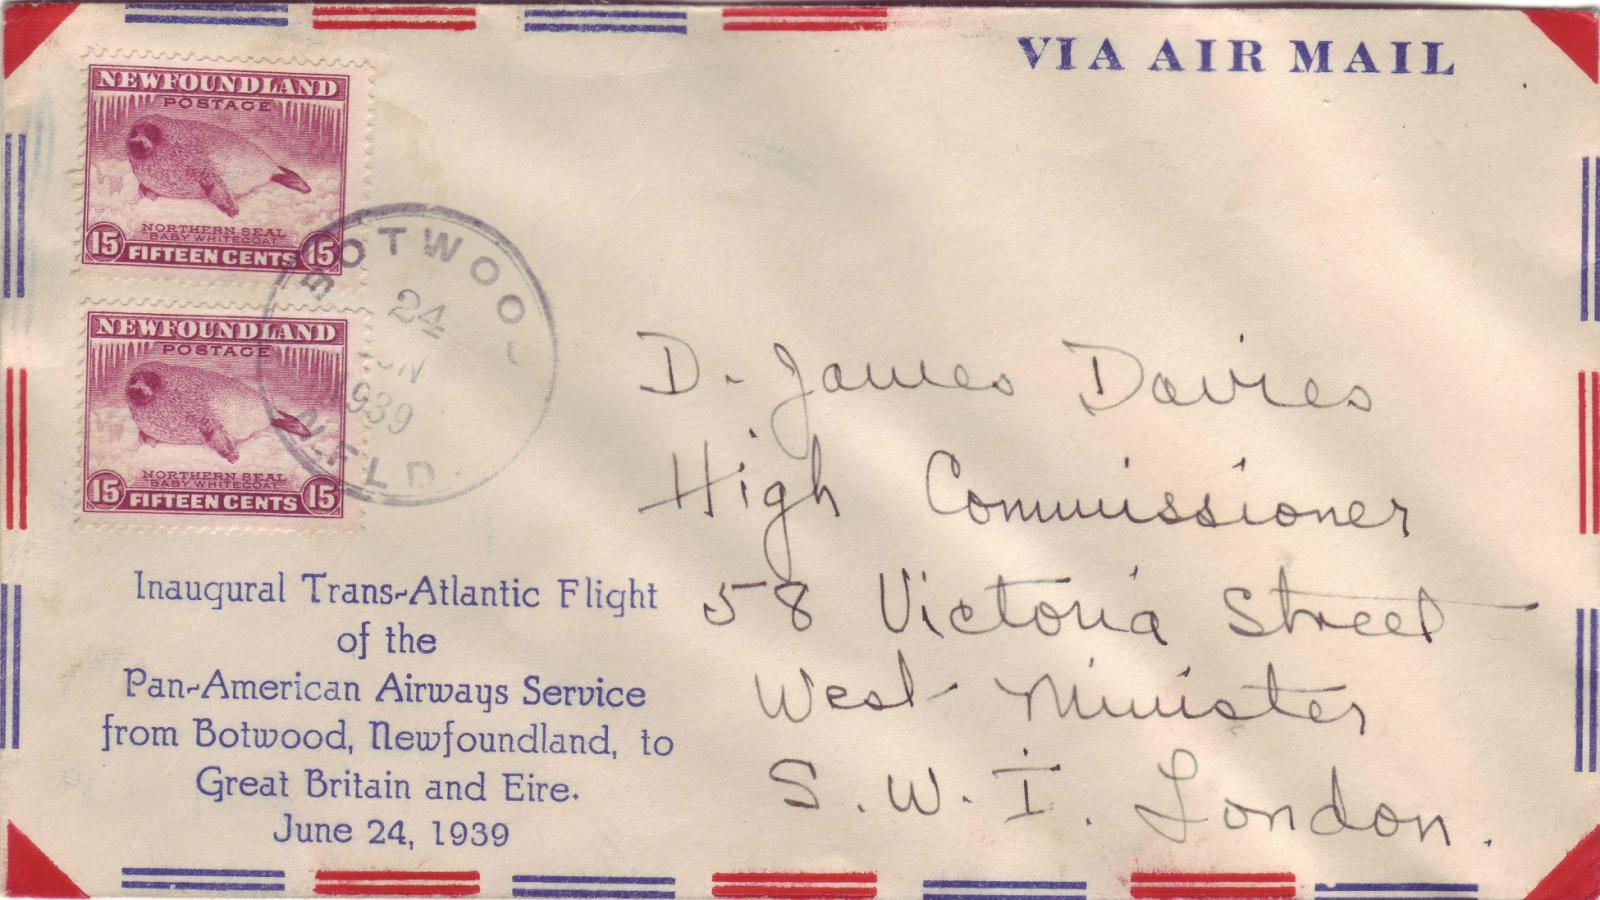 VIA AIR MAIL
NEWFOUNDLAND
POSTAGE
NORTHERN SEAL
BABY WHITECOAT
15 FIFTEEN CENTS 15
NEWFOUNDLAND
POSTAGE
NORTHERN SEAL
BABY WHITECOAT
15 FIFTEEN CENTS 15
BOTWOO
24
JUN
1939
NFLD.
D. James Davies
High Commissioner
58 Victoria Street
West Minister
S.W.I. London.
Inaugural Trans-Atlantic Flight
of the
Pan-American Airways Service
from Botwood, Newfoundland, to
Great Britain and Eire.
June 24, 1939